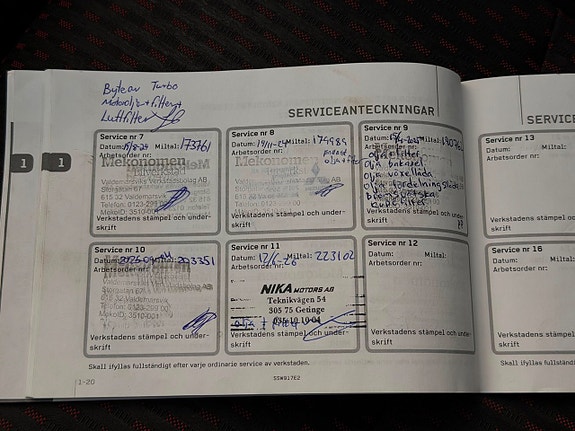 Byte av Turbo
Motorolja + filter +
Luftfilter
SERVICEANTECKNINGAR
Service nr 7
Datum: Miltal: 173761
Arbetsorder nr:
Mekonomen
Bilverkstad
Valdemarsviks Verkstadsbolag AB
Storgatan 67
615 32 Valdemarsvik
Telefon: 0123-299 00
MekoID: 3510-001
Verkstadens stämpel och under-
skrift
Service nr 8
Datum: 19/11-24 Miltal: 179989
Arbetsorder nr:
olja + filter
Mekonomen
Bilverkstad
Verkstadens stämpel och under-
skrift
Service nr 9
Datum: Miltal: 190761
Arbetsorder nr:
olja + filter
olja bakaxel
olja växellåda
olja fördelningslåda
bromsvätska
Verkstadens stämpel och under-
skrift
Service nr 10
Datum: Miltal: 203351
Arbetsorder nr:
Storgatan 67
615 32 Valdemarsvik
Telefon: 0123-299 00
MekoID: 3510-001
Verkstadens stämpel och under-
skrift
Service nr 11
Datum: 12/6-26 Miltal: 223102
Arbetsorder nr:
NIKA MOTORS AB
Teknikvägen 54
305 75 Getinge
035-10 10 04
olja + filter
Verkstadens stämpel och under-
skrift
Service nr 12
Datum: Miltal:
Arbetsorder nr:
Verkstadens stämpel och under-
skrift
Skall ifyllas fullständigt efter varje ordinarie service av verkstaden.
1-20
SSW917E2
1
1
SERVICE
Service nr 13
Datum:
Arbetsorder nr:
Verkstadens stämpel
skrift
Service nr 16
Datum:
Arbetsorder nr:
Verkstadens stämpel
skrift
Skall ifyllas fullständigt